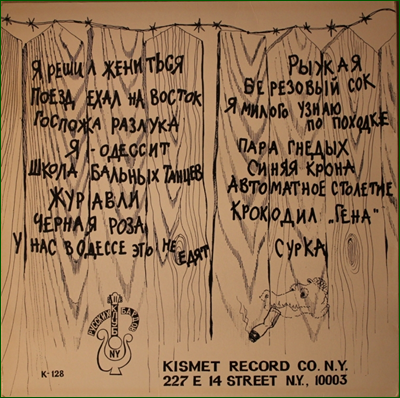 Я РЕШИЛ ЖЕНИТЬСЯ
ПОЕЗД ЕХАЛ НА ВОСТОК
ГОСПОЖА РАЗЛУКА
Я - ОДЕССИТ
ШКОЛА БАЛЬНЫХ ТАНЦЕВ
ЖУРАВЛИ
ЧЕРНАЯ РОЗА
У НАС В ОДЕССЕ ЭТО НЕ ЕДЯТ
РЫЖАЯ
БЕРЕЗОВЫЙ СОК
Я МИЛОГО УЗНАЮ
ПО ПОХОДКЕ
ПАРА ГНЕДЫХ
СИНЯЯ КРОНА
АВТОМАТНОЕ СТОЛЕТИЕ
КРОКОДИЛ „ГЕНА"
СУРКА
РУССКИЙ
NY
K-128
KISMET RECORD CO. N.Y.
227 E 14 STREET N.Y., 10003